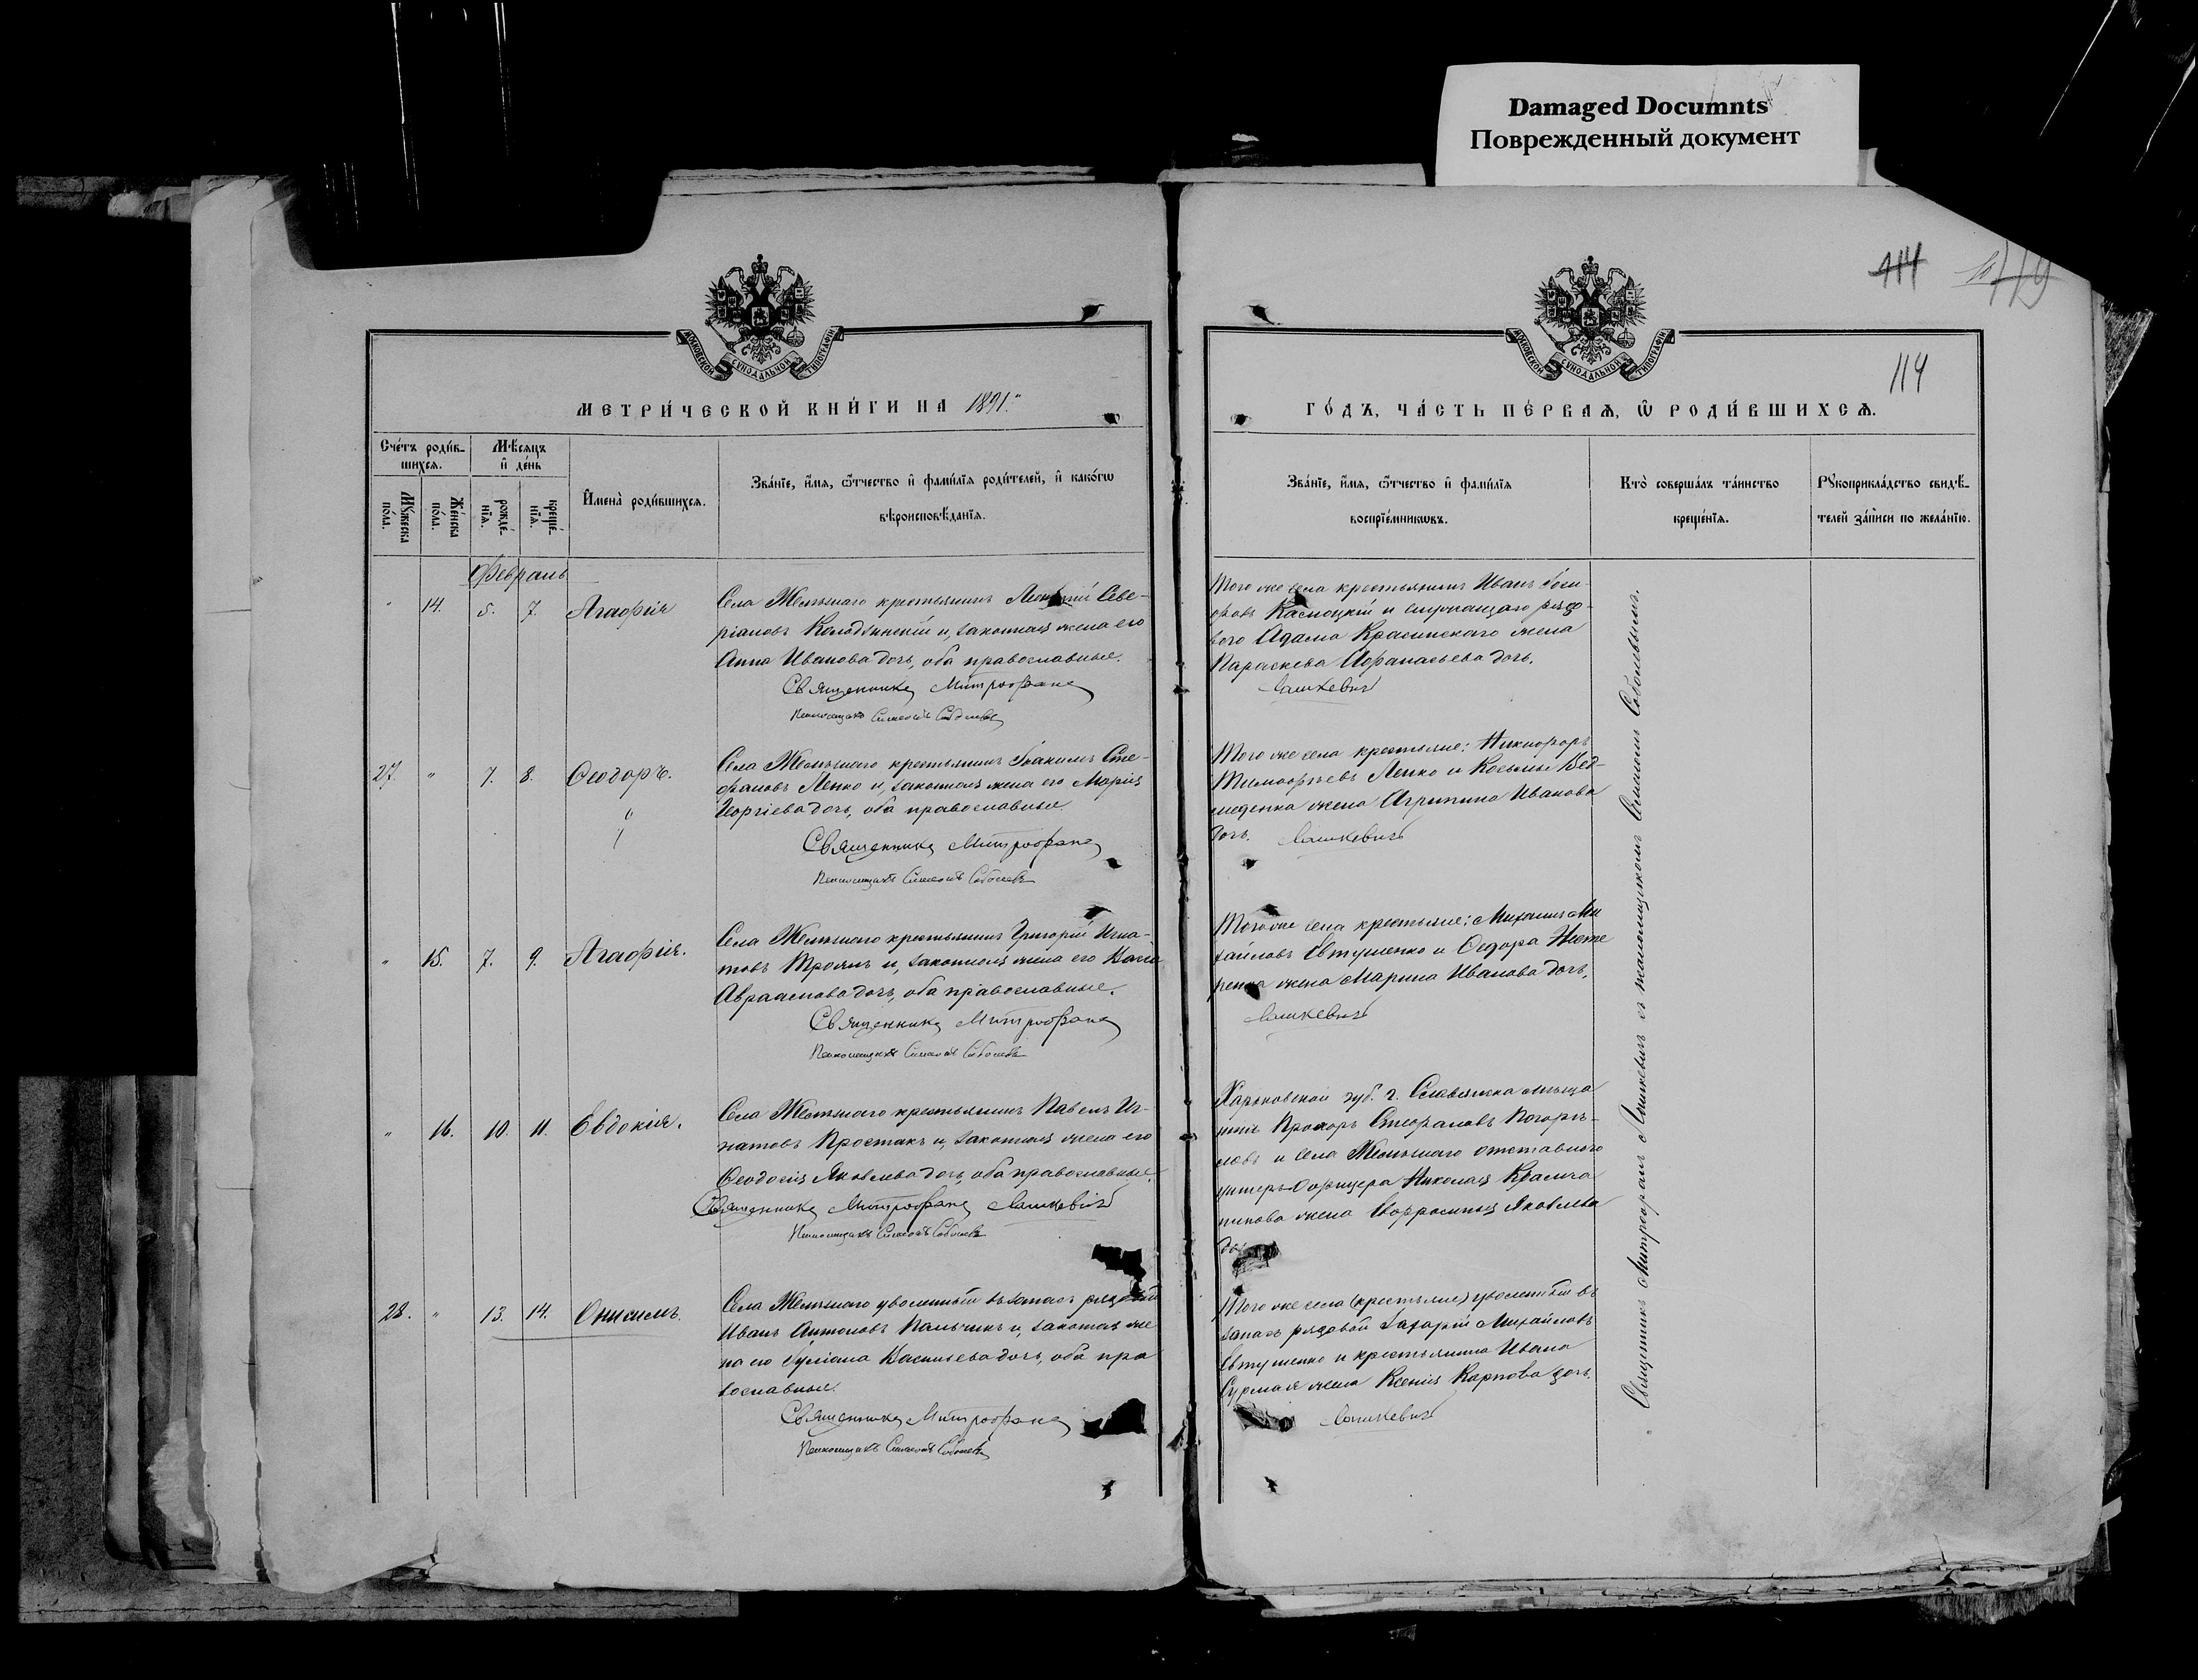 Damaged Documnts
Поврежденный документ
414
119
114
МОСКОВСКОЙ СѴНОДАЛЬНОЙ ТИПОГРАФІИ
МОСКОВСКОЙ СѴНОДАЛЬНОЙ ТИПОГРАФІИ
МЕТРИ́ЧЕСКОЙ КНИ́ГИ НА 1891.
ГО́ДЪ, ЧА́СТЬ ПЕ́РВАѦ, Ѡ҆ РОДИ́ВШИХСѦ.
Сче́тъ роди́в-
шихсѧ.
Мѣ́сѧцъ
и҆ де́нь
Мꙋ́жеска
по́ла.
Же́нска
по́ла.
рожде́-
нїѧ.
креще́-
нїѧ.
И҆мена̀ роди́вшихсѧ.
Зва́нїе, и҆́мѧ, ѻ҆́тчество и҆ фами́лїѧ роди́телей, и҆ како́гѡ
вѣроисповѣ́данїѧ.
Зва́нїе, и҆́мѧ, ѻ҆́тчество и҆ фами́лїѧ
воспрїе́мникѡвъ.
Кто̀ соверша́лъ та́инство
креще́нїѧ.
Рꙋкоприкла́дство свидѣ́-
телей за́писи по жела́нїю.
Февраль
" 14. 5. 7. Агафія
Села Желѣзнаго крестьянинъ Севе-
ріановъ Колодзинскій и, законная жена его
Анна Иванова дочь, оба православные.
Священникъ Митрофанъ
Псаломщикъ Симеонъ Соболевъ
Того же села крестьянинъ Иванъ
и служащаго рядо-
вого Адама Красинскаго жена
Параскева Афанасьева дочь.
Лашкевичъ
27. " 7. 8. Ѳеодоръ.
Села Желѣзнаго крестьянинъ Іоакимъ Сте-
фановъ Лепко и, законная жена его Марія
Георгіева дочь, оба православные.
Священникъ Митрофанъ
Псаломщикъ Симеонъ Соболевъ
Того же села крестьяне: Никифоръ
Тимофѣевъ Лепко и Косьмы Вед-
меденка жена Агрипина Иванова
дочь. Лашкевичъ
" 15. 7. 9. Агафія.
Села Желѣзнаго крестьянинъ Григорій Игна-
товъ Троянъ и, законная жена его
Авраамова дочь, оба православные.
Священникъ Митрофанъ
Псаломщикъ Симеонъ Соболевъ
Того же села крестьяне: Михаилъ Ми
хайловъ Евтушенко и Ѳедора Несте
ренка жена Марина Иванова дочь.
Лашкевичъ
" 16. 10. 11. Евдокія.
Села Желѣзнаго крестьянинъ Павелъ Иг-
натовъ Простакъ и, законная жена его
Ѳеодосія Яковлева дочь, оба православные.
Священникъ Митрофанъ Лашкевичъ
Псаломщикъ Симеонъ Соболевъ
Харьковской губ. г. Славянска мѣща
нинъ Прохоръ Стефановъ Погорѣ-
ловъ и села Желѣзнаго отставного
унтеръ-офицера Николая
жена Евфросинія Яковлева
28. " 13. 14. Онисимъ.
Села Желѣзнаго уволенный въ запасъ рядовой
Иванъ Антоновъ Пальчикъ и, законная же
на его Іуліана Васильева дочь, оба пра
вославные.
Священникъ Митрофанъ
Псаломщикъ Симеонъ Соболевъ
Того же села (крестьяне) уволенный въ
запасъ рядовой Захарій Михайловъ
Евтушенко и крестьянина Ивана
жена Ксенія Карпова дочь.
Лашкевичъ
Священникъ Митрофанъ Лашкевичъ съ псаломщикомъ Симеономъ Соболевымъ.